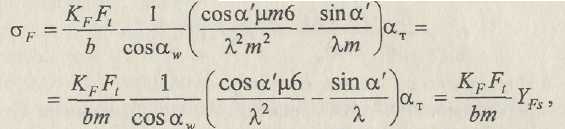 σ_F = \frac{K_F F_t}{b} \frac{1}{\cos α_w} \left( \frac{\cos α' μm6}{λ^2 m^2} - \frac{\sin α'}{λm} \right) α_т =
= \frac{K_F F_t}{bm} \frac{1}{\cos α_w} \left( \frac{\cos α' μ6}{λ^2} - \frac{\sin α'}{λ} \right) α_т = \frac{K_F F_t}{bm} Y_{Fs},